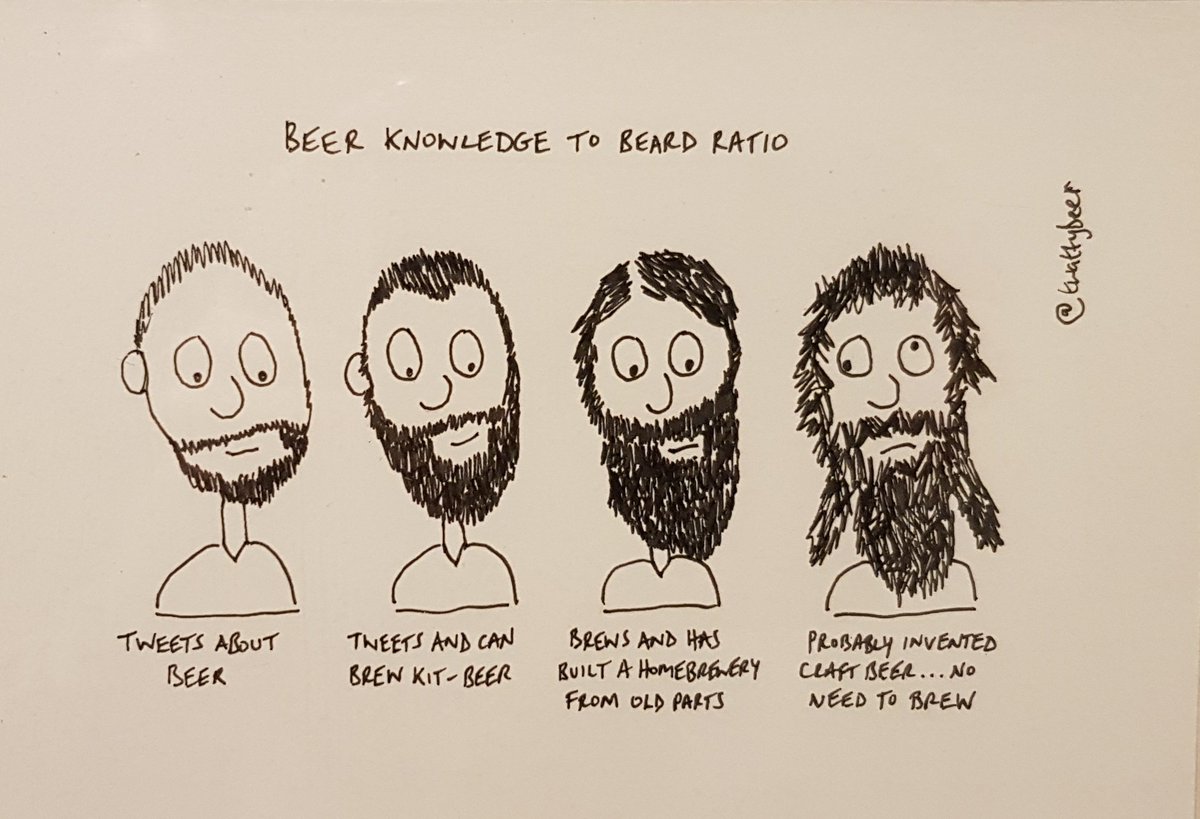 BEER KNOWLEDGE TO BEARD RATIO
@kwattybeer
TWEETS ABOUT
BEER
TWEETS AND CAN
BREW KIT-BEER
BREWS AND HAS
BUILT A HOMEBREWERY
FROM OLD PARTS
PROBABLY INVENTED
CRAFT BEER...NO
NEED TO BREW